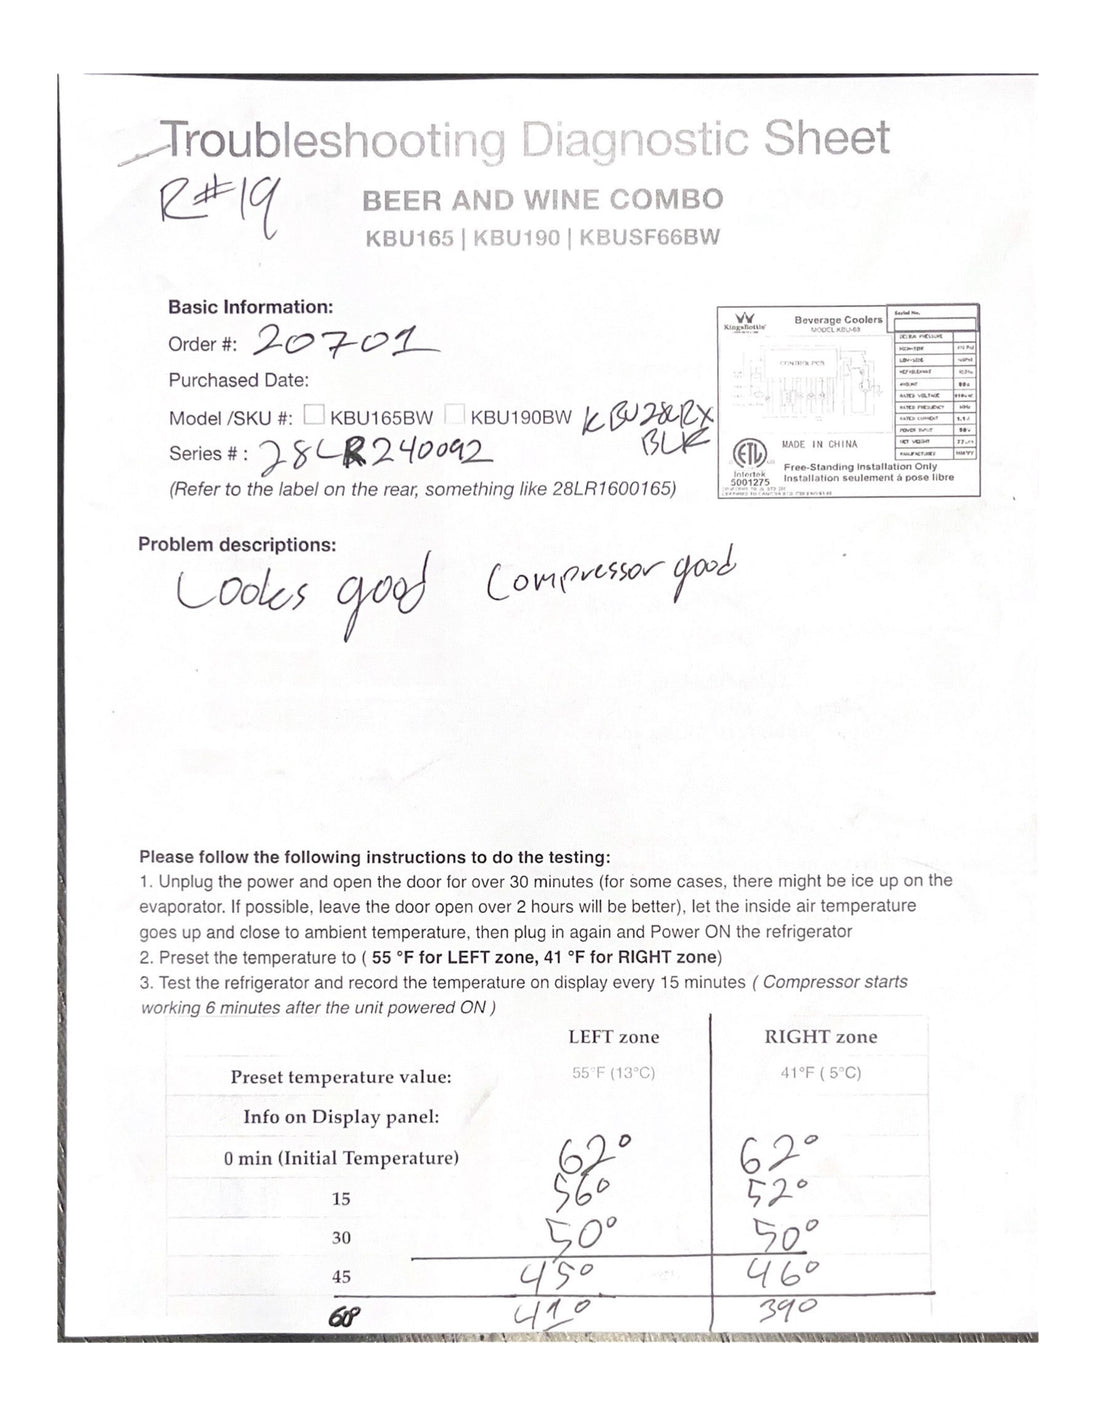 Troubleshooting Diagnostic Sheet
R#19
BEER AND WINE COMBO
KBU165 | KBU190 | KBUSF66BW
Basic Information:
Order #: 20701
Purchased Date:
Model /SKU #: KBU165BW KBU190BW KBU28LRX
BLK
Series # : 28LR240092
(Refer to the label on the rear, something like 28LR1600165)
KingsBottle
Beverage Coolers
MODEL KBU-68
Serial No.
CONTROL PCB
MADE IN CHINA
ETL
Intertek
5001275
Free-Standing Installation Only
Installation seulement á pose libre
Problem descriptions:
Looks good Compressor good
Please follow the following instructions to do the testing:
1. Unplug the power and open the door for over 30 minutes (for some cases, there might be ice up on the
evaporator. If possible, leave the door open over 2 hours will be better), let the inside air temperature
goes up and close to ambient temperature, then plug in again and Power ON the refrigerator
2. Preset the temperature to ( 55 °F for LEFT zone, 41 °F for RIGHT zone)
3. Test the refrigerator and record the temperature on display every 15 minutes ( Compressor starts
working 6 minutes after the unit powered ON )
LEFT zone RIGHT zone
Preset temperature value: 55°F (13°C) 41°F ( 5°C)
Info on Display panel:
0 min (Initial Temperature) 62° 62°
15 56° 52°
30 50° 50°
45 45° 46°
60 41° 39°